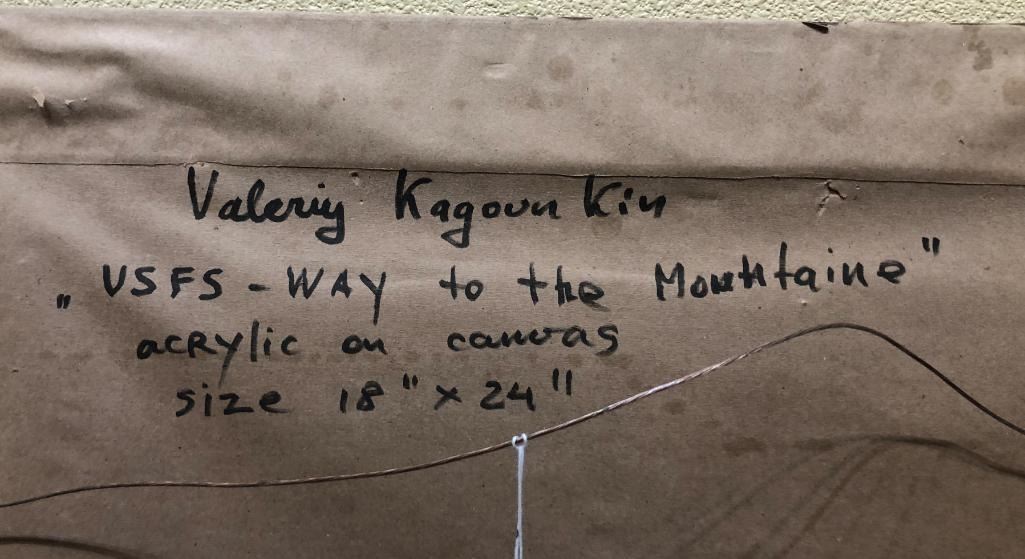 Valeriy Kagounkin
„ USFS - WAY to the Mountaine"
acrylic on canvas
size 18" x 24"